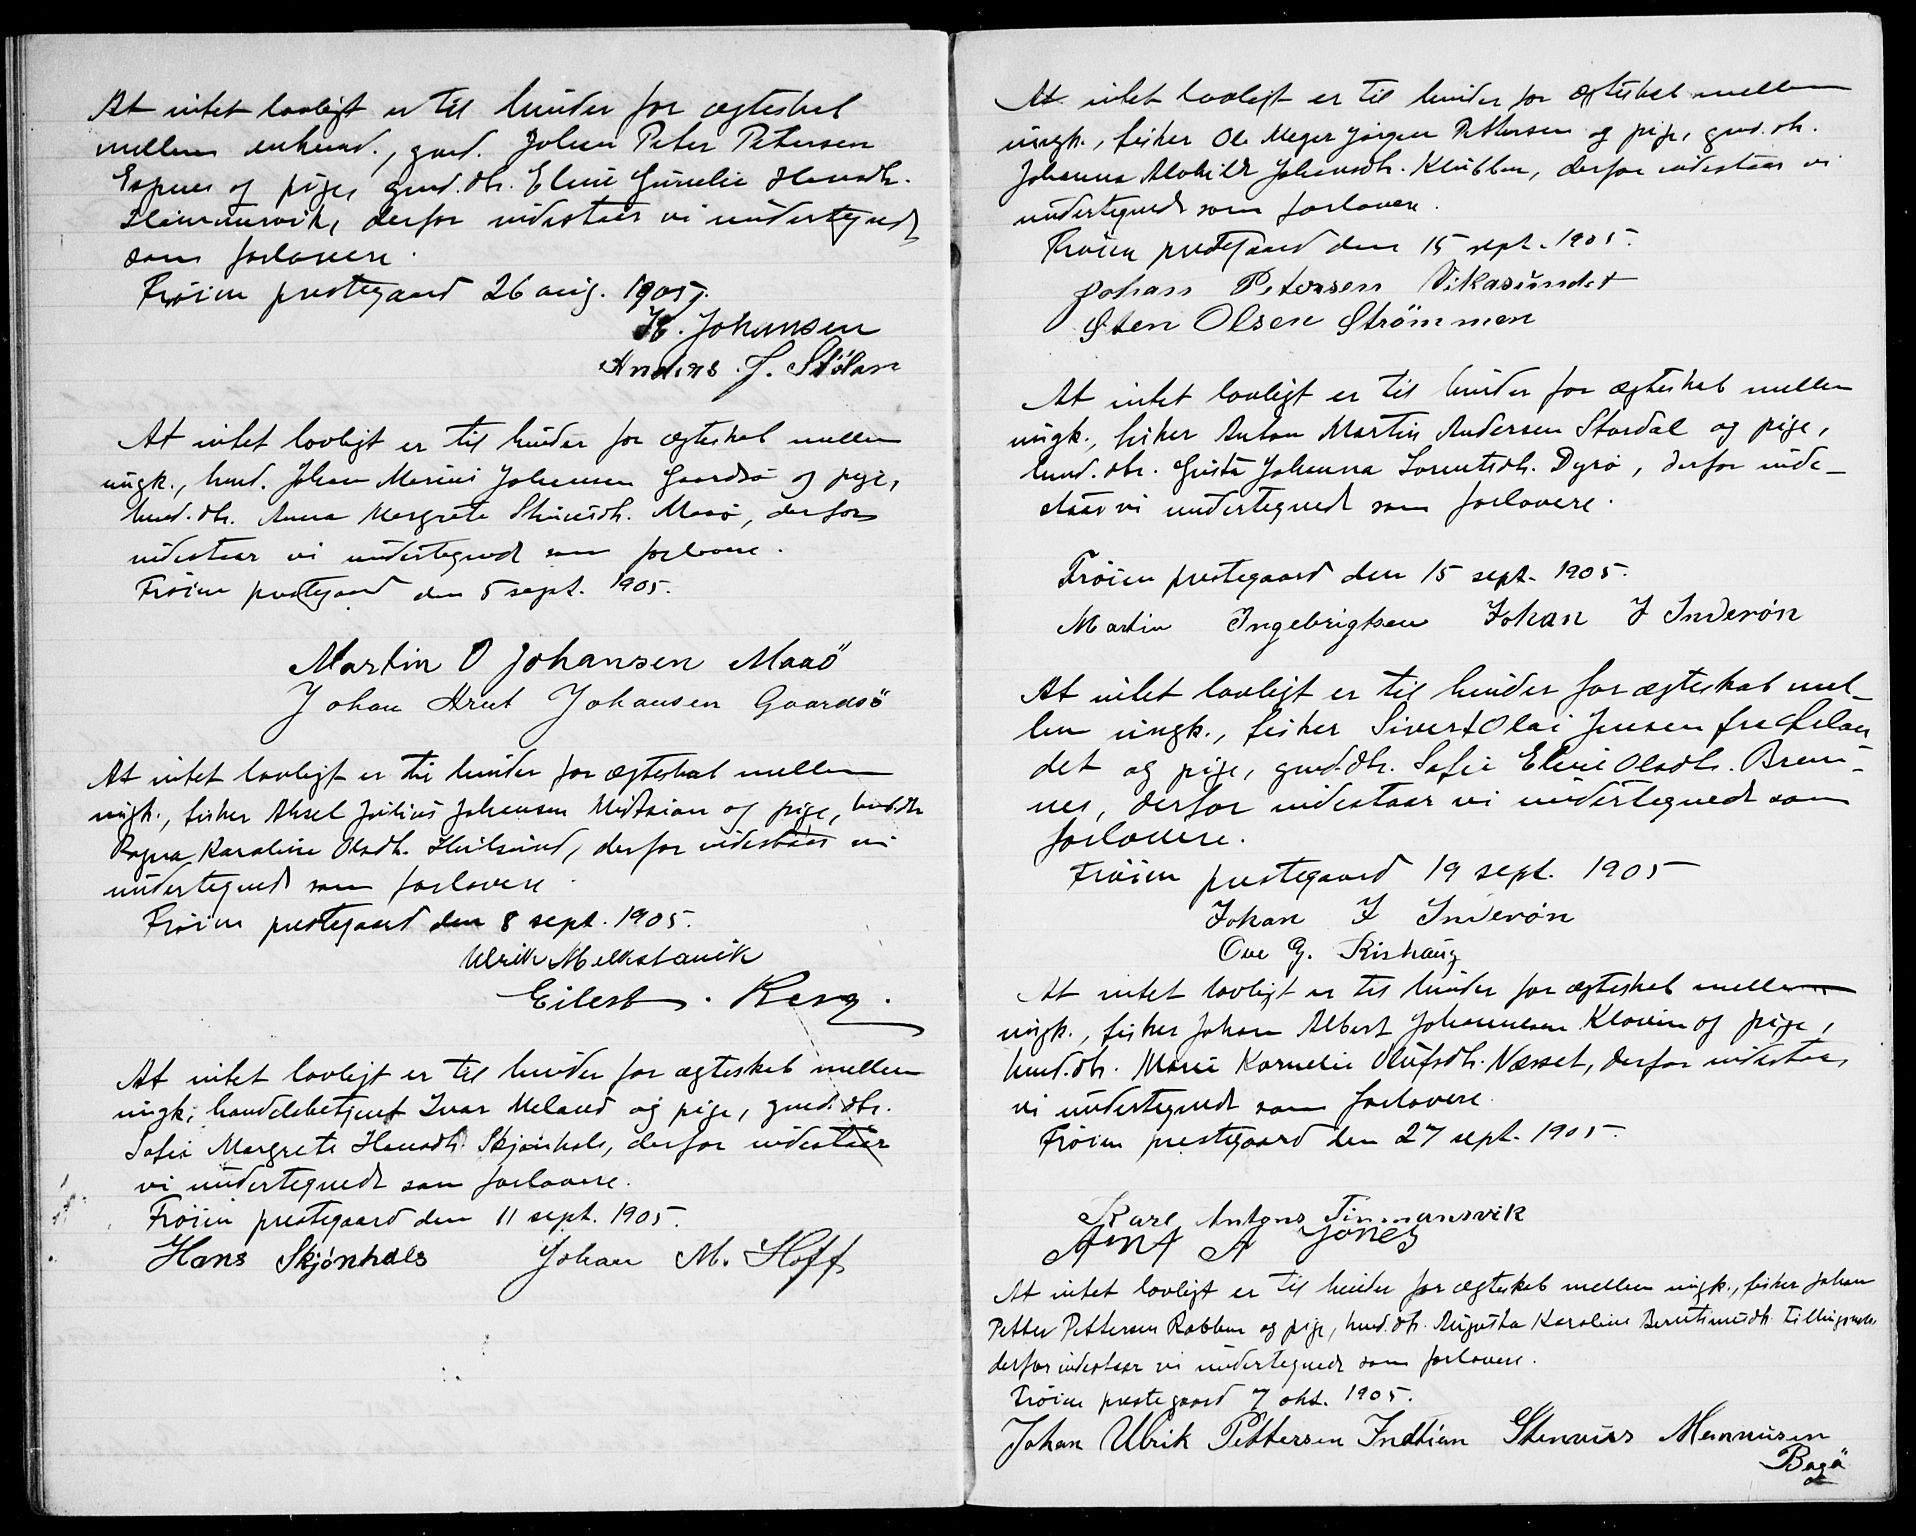 At intet lovligt er til hinder for ægteskab
mellem enkemd., gmd. Johan Peter Petersen
Espnes og pige, gmd.dtr. Eline Gurelie Hansdtr.
derfor indestaar vi undertegnede
som forlovere.
Frøien prestegaard 26 aug. 1905.
K. Johansen
Anders J. Stølan
At intet lovligt er til hinder for ægteskab mellem
ungk., husmd. Johan Marius Johansen Gaardsø og pige,
husmd.dtr. Anna Margrete Maaø, derfor
indestaar vi undertegnede som forlovere.
Frøien prestegaard den 5 sept. 1905.
Martin O Johansen Maaö
Johan Arnt Johansen Gaardsö
At intet lovligt er til hinder for ægteskab mellem
ungk., fisker Aksel Julius Johansen og pige, husmd.dtr
Ragna Karoline Olsdtr. derfor indestaar vi
undertegnede som forlovere.
Frøien prestegaard den 8 sept. 1905.
Ulrik Melkstavik
Eilert. Berg.
At intet lovligt er til hinder for ægteskab mellem
ungk., handelsbetjent Ivar Meland og pige, gmd.dtr.
Sofie Margrete Hansdtr. Skjønhals, derfor indestaar
vi undertegnede som forlovere.
Frøien prestegaard den 11 sept. 1905.
Hans Skjønhals Johan M. Hoff
At intet lovligt er til hinder for ægteskab mellem
ungk., fisker Ole Meyer Jørgen Pettersen og pige, gmd.dtr.
Johanna Alvhilde Johansdtr. Klubben, derfor indestaar vi
undertegnede som forlovere.
Frøien prestegaard den 15 sept. 1905.
Johan Petersen Vikasundet
Sten Olsen Strömmen
At intet lovligt er til hinder for ægteskab mellem
ungk., fisker Anton Martin Andersen Stordal og pige,
husmd.dtr. Gusta Johanna Lorentsdtr. Dyrø, derfor inde-
staar vi undertegnede som forlovere.
Frøien prestegaard den 15 sept. 1905.
Martin Ingebrigtsen Johan J Inderøn
At intet lovligt er til hinder for ægteskab mel-
lem ungk., fisker Sivert Olai Jensen fra Selan-
det og pige, gmd.dtr. Sofie Eline Olsdtr. Brem-
nes, derfor indestaar vi undertegnede som
forlovere.
Frøien prestegaard 19 sept. 1905
Johan J Inderøn
Ove G. Rishaug
At intet lovligt er til hinder for ægteskab mellem
ungk., fisker Johan Albert Johannesen Klavin og pige,
husmd.dtr. Marie Kornelie Olufsdtr. Næsset, derfor indestaar
vi undertegnede som forlovere.
Frøien prestegaard den 27 sept. 1905.
Karl Antons Timmansvik
Arnt A Jones
At intet lovligt er til hinder for ægteskab mellem ungk., fisker Johan
Petter Pettersen Rabben og pige, husmd.dtr. Augusta Karoline
derfor indestaar vi undertegnede som forlovere.
Frøien prestegaard 7 okt. 1905.
Johan Ulrik Pettersen Indtian Stenvius Mannusen
Bogö